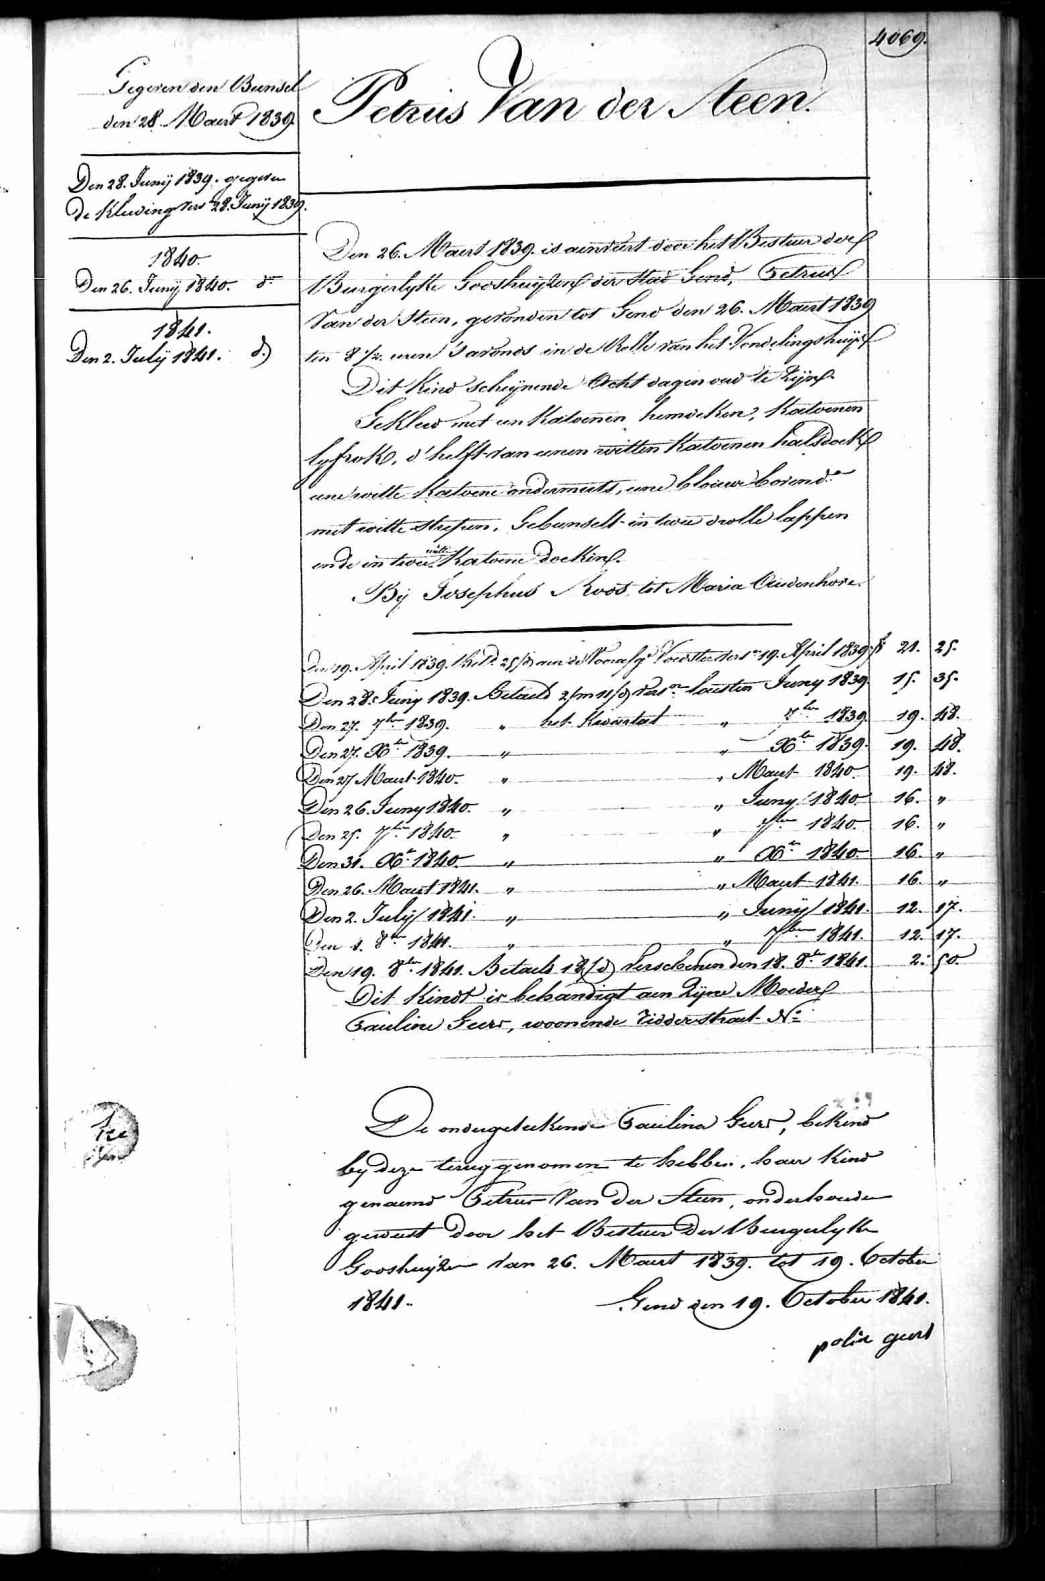 4069.
Gegeven den Bunsel
den 28. Maert 1839
Petrus Van der Steen.
Den 28. Junij 1839. gegeven
de Kleeding vers. 28. Junij 1839.
1840.
Den 26. Junij 1840. do
1841.
Den 2. Julij 1841. d.)
Den 26. Maert 1839. is aenveert door het Bestuer der
Burgerlyke Godshuijzen der Stad Gend, Petrus
Van der Steen, gevonden tot Gend den 26. Maert 1839
ten 8 1/2 uren 's avonds in de Rolle van het Vondelingshuijs
Dit Kind schijnende Acht dagen oud te zijn.
Gekleed met een Katoenen hemdeken, Katoenen
lyfrok, d'helft van eenen witten Katoenen halsdoek
eene witte Katoene ondermuts, eene blauwe bovend.e
met witte strepen, Gebunselt in twee wolle lappen
ende in twee witte Katoene doekins.
Bij Josephus Roos tot Maria Oudenhove.
Den 19. April 1839. 25/d) aen de Voedster vers.n 19. April 1839 f 21. 25.
Den 28. Junij 1839. Betaeld 2/m 11/d) vers.n lousten Juny 1839 15. 35.
Den 27. 7ber 1839. " het Kwartael " 7ber 1839. 19. 48.
Den 27. Xber 1839. " " Xber 1839. 19. 48.
Den 27 Maert 1840. " " Maert 1840. 19. 48.
Den 26. Juny 1840. " " Juny 1840. 16. "
Den 25. 7ber 1840. " " 7ber 1840. 16. "
Den 31. Xber 1840. " " Xber 1840. 16. "
Den 26. Maert 1841. " " Maert 1841. 16. "
Den 2. Julij 1841. " " Junij 1841. 12. 17.
Den 1. 8ber 1841. " " 7ber 1841. 12. 17.
Den 19. 8ber 1841. Betaeld 18/d) Verschenen den 18. 8ber 1841. 2. 50
Dit Kindt is behandigt aen Zijne Moeder
Pauline Geers, woonende Ridderstraet No
De ondergeteekende Paulina Geers, bekend
by deze terug genomen te hebben, haer Kind
genaemd Petrus Van Der Steen, onderhouden
geweest door het Bestuer Der Burgerlyke
Godshuijzen van 26. Maert 1839. tot 19. October
1841. Gend den 19. October 1841.
polin geers